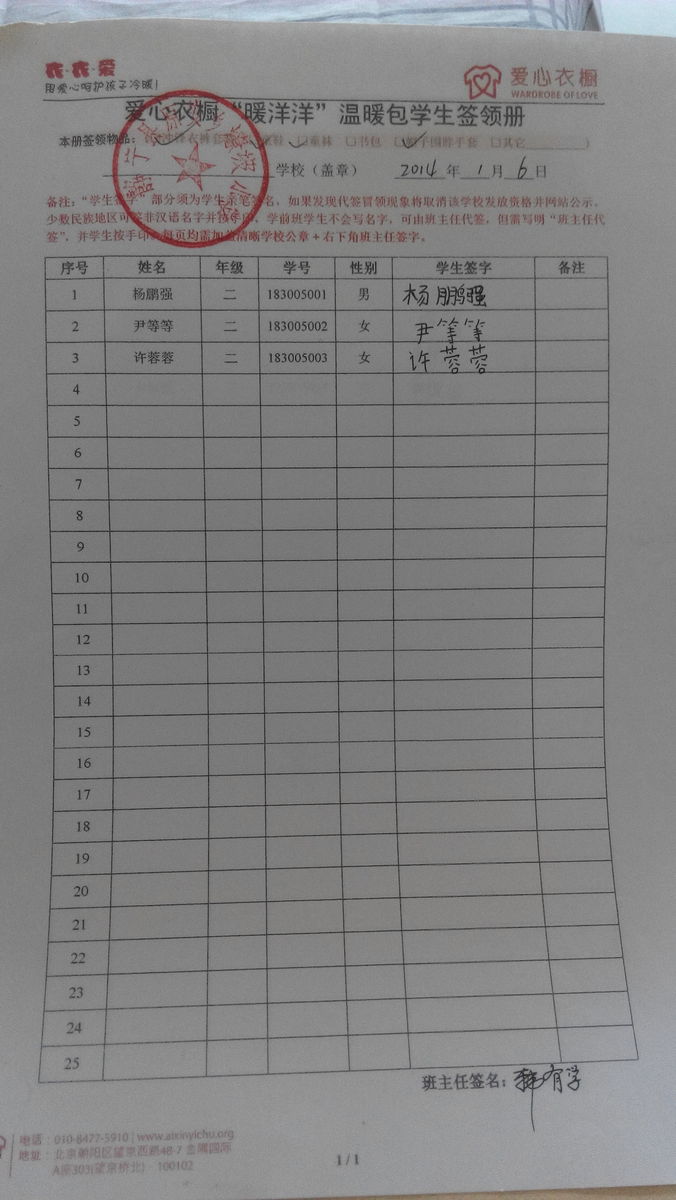 衣·衣·爱
用爱心呵护孩子冷暖!
爱心衣橱
WARDROBE OF LOVE
爱心衣橱“暖洋洋”温暖包学生签领册
本册签领物品: 童鞋 □童袜 □书包 帽子围脖手套 □其它 )
学校(盖章) 2014年 1月 6日
备注:“学生签 ”部分须为学生亲笔签名,如果发现代签冒领现象将取消该学校发放资格并网站公示。
少数民族地区可签非汉语名字并按手印。学前班学生不会写名字,可由班主任代签,但需写明“班主任代
签”,并学生按手印。每页均需加盖清晰学校公章+右下角班主任签字。
序号 姓名 年级 学号 性别 学生签字 备注
1 杨鹏强 二 183005001 男 杨鹏强
2 尹等等 二 183005002 女 尹等等
3 许蓉蓉 二 183005003 女 许蓉蓉
4
5
6
7
8
9
10
11
12
13
14
15
16
17
18
19
20
21
22
23
24
25
班主任签名: 有学
电话:010-8477-5910 | www.aixinyichu.org
地址:北京朝阳区望京西路48-7 金隅国际
A座303(望京桥北)·100102
1 / 1